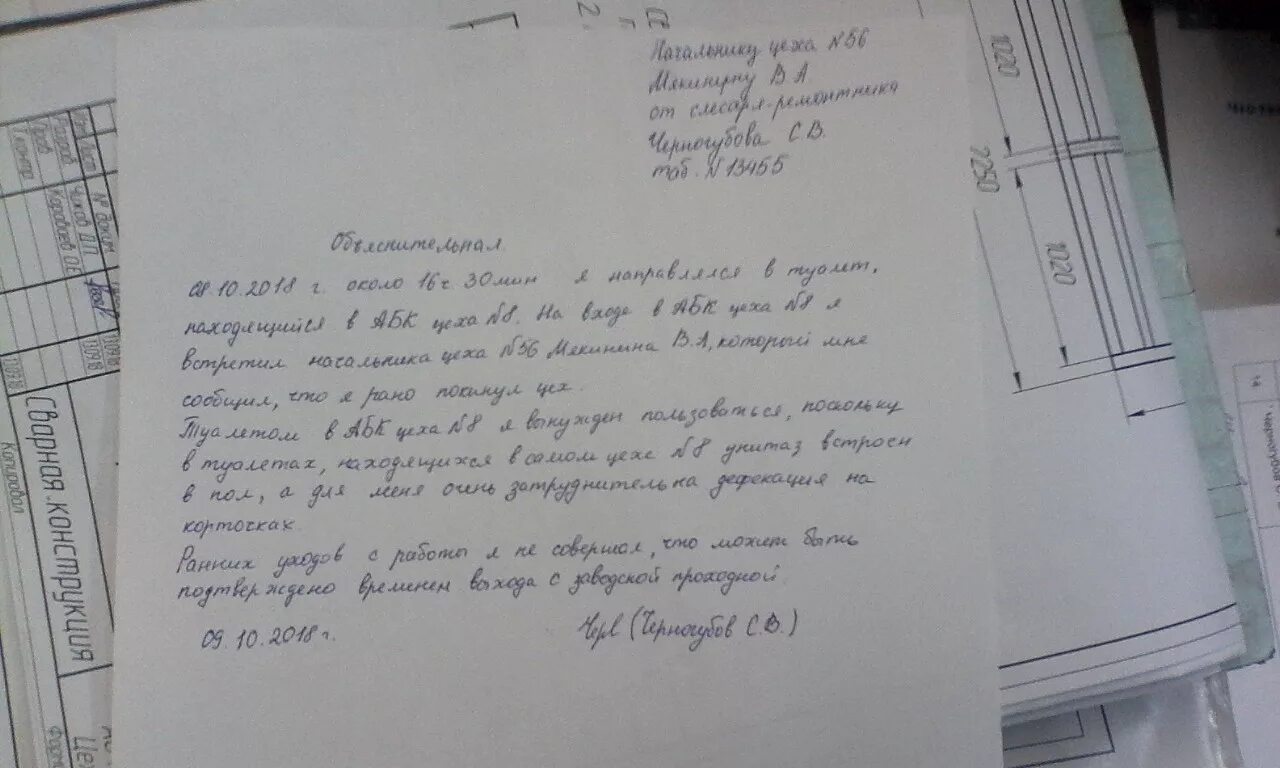 Начальнику цеха №56
Мякинину В А
от слесаря-ремонтника
Черногубова С.В.
таб. №13455
Объяснительная
08.10.2018 г. около 16ч. 30мин я направлялся в туалет,
находящийся в АБК цеха №8. На входе в АБК цеха №8 я
встретил начальника цеха №56 Мякинина В.А, который мне
сообщил, что я рано покинул цех.
Туалетом в АБК цеха №8 я вынужден пользоваться, поскольку
в туалетах, находящихся в самом цехе №8 унитаз встроен
в пол, а для меня очень затруднительна дефекация на
корточках.
Ранних уходов с работы я не совершал, что может быть
подтверждено временем выхода с заводской проходной.
09.10.2018г.
Черв (Черногубов С.В.)
1020
7250
1020
14
Изм Лист
№ докум
Разраб
Чижов Д.П.
Пров
Карабаев О.Е
Т.контр
Сварная конструкция
Копировал